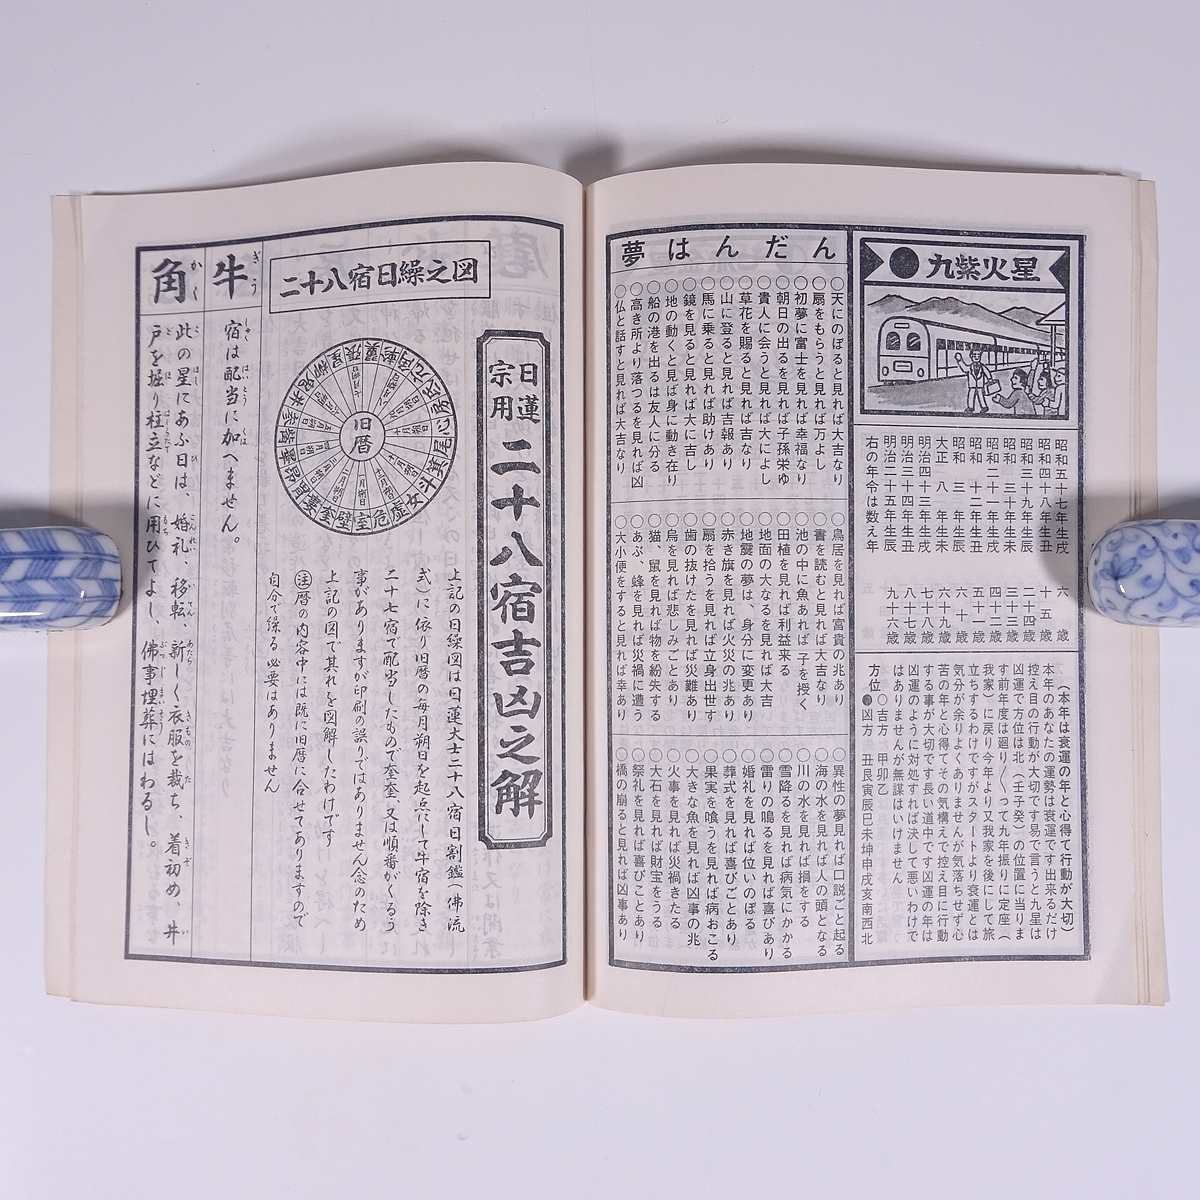 ●九紫火星
昭和五十七年生戌 六歳
昭和四十八年生丑 十五歳
昭和三十九年生辰 二十四歳
昭和三十年生未 三十三歳
昭和二十一年生戌 四十二歳
昭和十二年生丑 五十一歳
昭和三年生辰 六十歳
大正八年生未 六十九歳
明治四十三年生戌 七十八歳
明治三十四年生丑 八十七歳
明治二十五年生辰 九十六歳
右の年令は数え年
(本年は衰運の年と心得て行動が大切)
本年のあなたの運勢は衰運です出来るだけ
控え目の行動が大切です易で言うと九星は
凶運で方位は北(壬子癸)の位置に当りま
す前年度は廻り〳〵って九年振りに定座(
我家)に戻り今年より又我家を後にして旅
立ちするわけですがスタートより衰運とは
気分が余りよくありませんが気落ちせず心
苦の年と心得てその気構えで控え目に行動
する事が大切です長い道中です凶運の年は
凶運のように対処すれば決して悪いわけで
はありませんが無謀はいけません
方位 ○吉方 甲卯乙
●凶方 丑艮寅辰巳未坤申戌亥南西北
夢はんだん
○天にのぼると見れば大吉なり
○扇をもらうと見れば万よし
○初夢に富士を見れば幸福なり
○朝日の出るを見れば子孫栄ゆ
○貴人に会うと見れば大によし
○草花を賜ると見れば吉なり
○山に登ると見れば吉報あり
○馬に乗ると見れば助けあり
○鏡を見ると見れば大に吉し
○地の動くと見れば身に動き在り
○船の港を出るは友人に分る
○高き所より落つるを見れば凶
○仏と話すと見れば大吉なり
○鳥居を見れば富貴の兆あり
○書を読むと見れば大吉なり
○池の中に魚あれば子を授く
○田植を見れば利益来る
○地面の大なるを見れば大吉
○地震の夢は、身分に変更あり
○赤き旗を見れば火災の兆あり
○扇を拾うを見れば立身出世す
○歯の抜けたを見れば災難あり
○烏を見れば悲しみごとあり
○猫、鼠を見れば物を紛失する
○あぶ、蜂を見れば災禍に遭う
○大小便をすると見れば幸あり
○異性の夢見れば口説ごと起る
○海の水を見れば人の頭となる
○川の水を見れば損をする
○雪降るを見れば病気にかかる
○雷りの鳴るを見れば喜びあり
○婚礼を見れば位いのぼる
○葬式を見れば喜びごとあり
○果実を喰うを見れば病おこる
○大きな魚を見れば凶事の兆
○火事を見れば災禍きたる
○大石を見れば財宝をうる
○祭礼を見れば喜びことあり
○橋の崩ると見れば凶事あり
日蓮宗用 二十八宿吉凶之解
二十八宿日繰之図
旧暦
上記の日繰図は日蓮大士二十八宿日割鑑(佛流
式)に依り旧暦の毎月朔日を起点にして牛宿を除き
二十七宿で配当したもので奎奎、又は順番がくるう
事がありますが印刷の誤りではありません念のため
上記の図で其れを図解したわけです
㊟暦の内容中には既に旧暦に合せてありますので
自分で繰る必要はありません
牛 ぎう
宿は配当に加へません。
角 かく
此の星にあふ日は、婚礼、移転、新しく衣服を裁ち、着初め、井
戸を掘り柱立などに用ひてよし、佛事埋葬にはわるし。